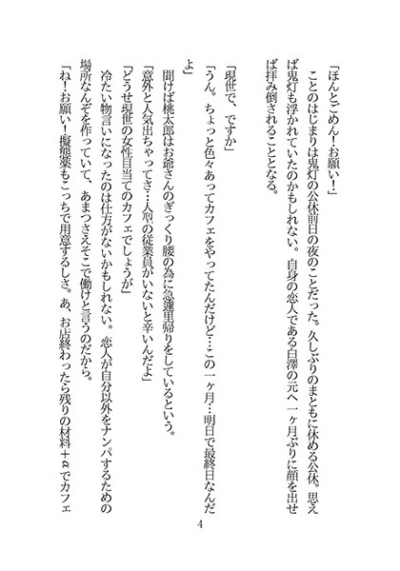 「ほんとごめん！お願い！」
　ことのはじまりは鬼灯の公休前日の夜のことだった。久しぶりのまともに休める公休。思え
ば鬼灯も浮かれていたのかもしれない。自身の恋人である白澤の元へ一ヶ月ぶりに顔を出せ
ば拝み倒されることとなる。
「現世で、ですか」
「うん。ちょっと色々あってカフェをやってたんだけど…この一ヶ月…明日で最終日なんだ
よ」
　聞けば桃太郎はお爺さんのぎっくり腰の為に急遽里帰りをしているという。
「意外と人気出ちゃってさ…人型の従業員がいないと辛いんだよ」
「どうせ現世の女性目当てのカフェでしょうが」
　冷たい物言いになったのは仕方がないかもしれない。恋人が自分以外をナンパするための
場所なんぞを作っていて、あまつさえそこで働けと言うのだから。
「ね！お願い！擬態薬もこっちで用意するしさ。あ、お店終わったら残りの材料＋αでカフェ
4